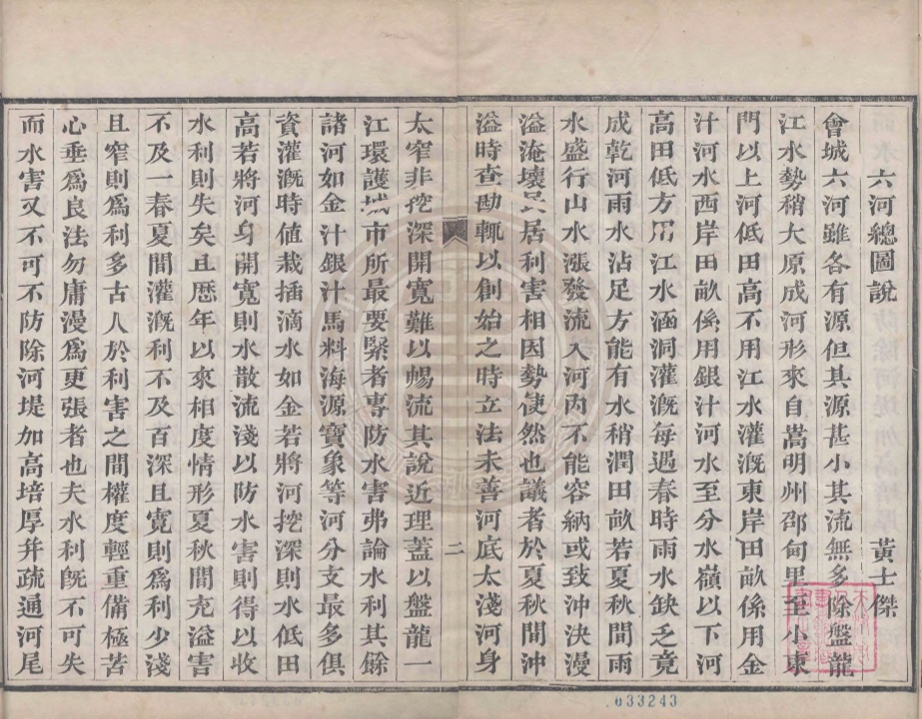 六河總圖說　黃士傑
會城六河雖各有源但其源甚小其流無多除盤龍
江水勢稍大原成河形來自嵩明州邵甸里至小東
門以上河低田高不用江水灌溉東岸田畝係用金
汁河水西岸田畝係用銀汁河水至分水嶺以下河
高田低方用江水涵洞灌溉每遇春時雨水缺乏竟
成乾河雨水沾足方能有水稍潤田畝若夏秋間雨
水盛行山水漲發流入河內不能容納或致沖決漫
溢淹壞民居利害相因勢使然也議者於夏秋間沖
溢時查勘輒以創始之時立法未善河底太淺河身
二
太窄非挖深開寬難以暢流其說近理蓋以盤龍一
江環護城市所最要緊者專防水害弗論水利其餘
諸河如金汁銀汁馬料海源寶象等河分支最多俱
資灌溉時值栽插滴水如金若將河挖深則水低田
高若將河身開寬則水散流淺以防水害則得以收
水利則失矣且歷年以來相度情形夏秋間充溢害
不及一春夏間灌溉利不及百深且寬則爲利少淺
且窄則爲利多古人於利害之間權度輕重備極苦
心垂爲良法勿庸漫爲更張者也夫水利旣不可失
而水害又不可不防除河堤加高培厚幷疏通河尾
033243